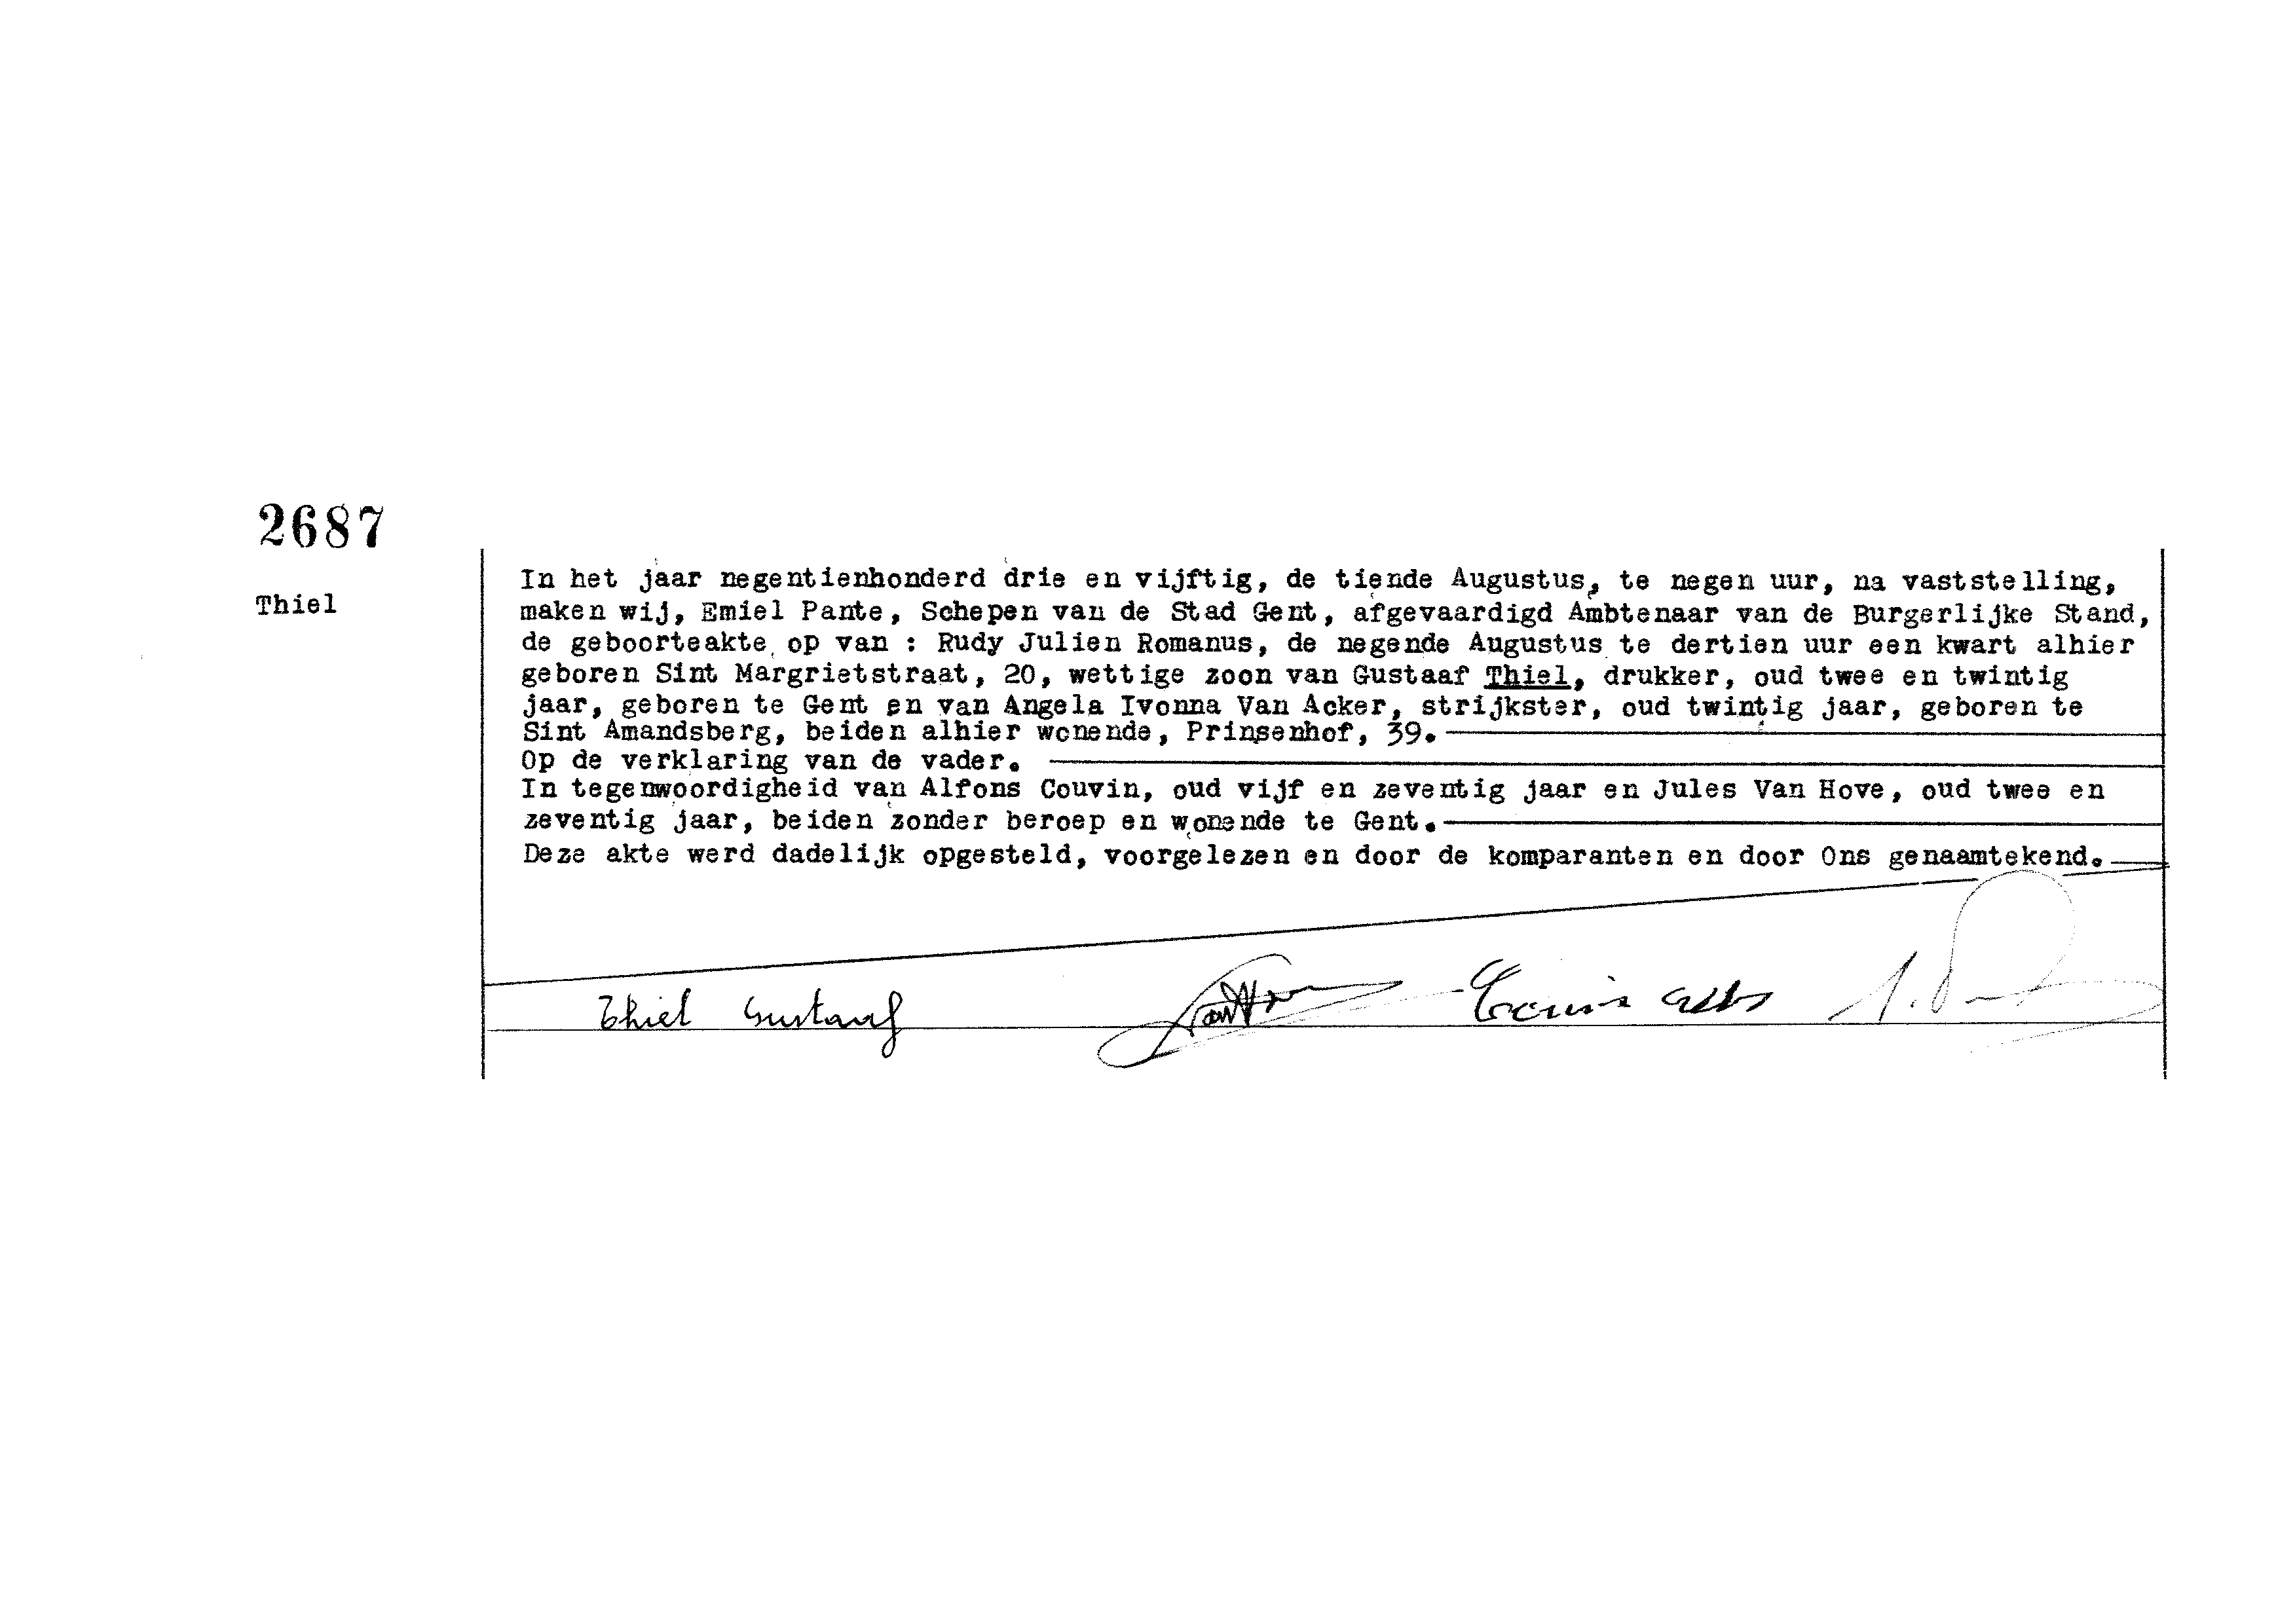 2687
Thiel
In het jaar negentienhonderd drie en vijftig, de tiende Augustus, te negen uur, na vaststelling,
maken wij, Emiel Pante, Schepen van de Stad Gent, afgevaardigd Ambtenaar van de Burgerlijke Stand,
de geboorteakte op van : Rudy Julien Romanus, de negende Augustus te dertien uur een kwart alhier
geboren Sint Margrietstraat, 20, wettige zoon van Gustaaf Thiel, drukker, oud twee en twintig
jaar, geboren te Gent en van Angela Ivonna Van Acker, strijkster, oud twintig jaar, geboren te
Sint Amandsberg, beiden alhier wonende, Prinsenhof, 39.
Op de verklaring van de vader.
In tegenwoordigheid van Alfons Couvin, oud vijf en zeventig jaar en Jules Van Hove, oud twee en
zeventig jaar, beiden zonder beroep en wonende te Gent.
Deze akte werd dadelijk opgesteld, voorgelezen en door de komparanten en door Ons genaamtekend.
Thiel Gustaaf